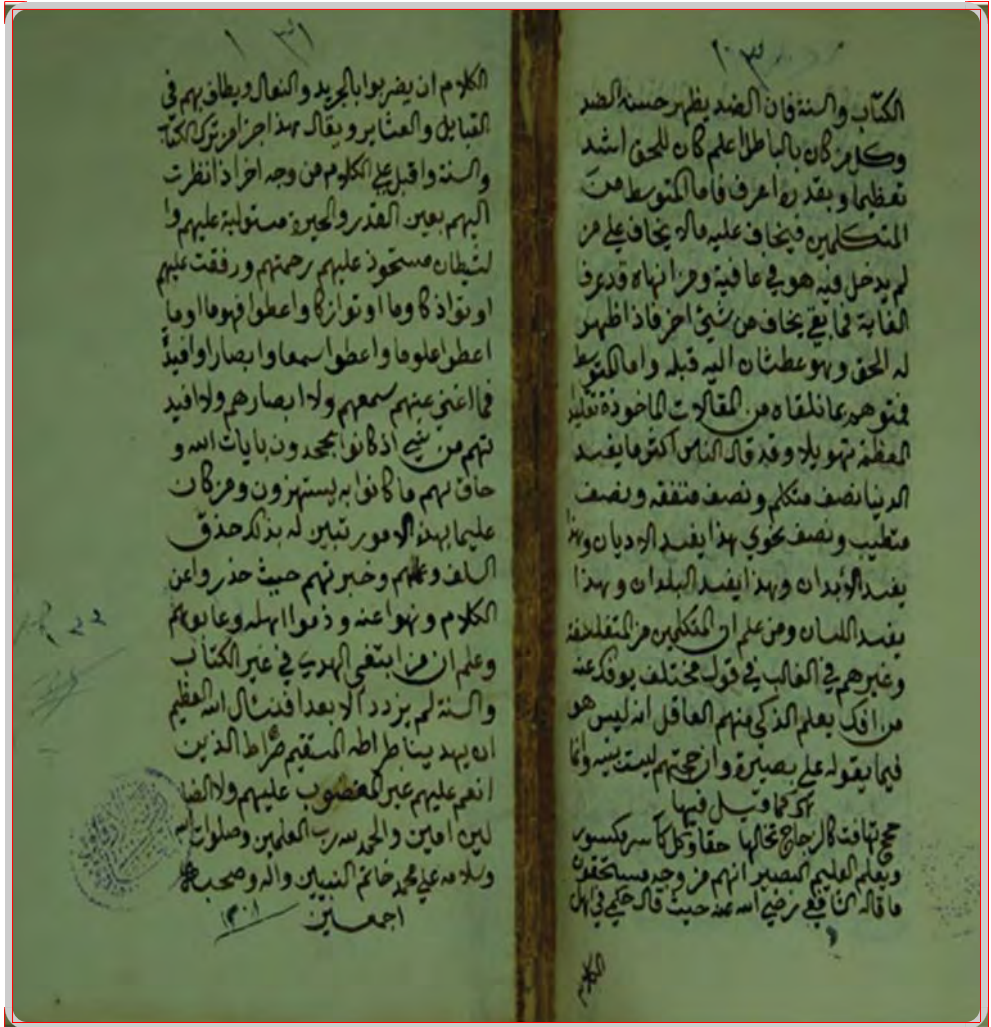 ١٠٣
الكتاب والسنة فان الضد يظهر حسنه الضد
وكل من كان بالباطل اعلم كان للحق اشد
تعظيما وبقدره اعرف فاما المتوسط من
المتكلمين فيخاف عليه مالا يخاف على من
لم يدخل فيه هو في عافية ومن انهاه قد عرف
الغاية فما بقي يخاف من شيئ اخر فاذا ظهر
له الحق وهو عطشان اليه قبله واما المتوسط
فمتوهم بما تلقاه من المقالات الماخوذة تقليدا
المعظمة تهويلا وقد قال الناس اكثر ما يفسد
الدنيا نصف متكلم ونصف متفقه ونصف
متطبب ونصف نحوي هذا يفسد الاديان وهذا
يفسد الأبدان وهذا يفسد البلدان وهذا
يفسد اللسان ومن علم ان المتكلمين من المتفلسفة
وغيرهم في الغالب في قول مختلف يوفك عنه
من افك يعلم الذكي منهم العاقل انه ليس هو
فيما يقوله على بصيرة وان حجتهم ليست بينه وانما
كما قيل فيها
حجج تهافت كالزجاج تخالها حقا وكل كاسر مكسور
ويعلم العليم البصير انهم من وجه مستحقون
ما قاله الشافعي رضي الله عنه حيث قال حكمي في اهل
الكلام
١٣١
الكلام ان يضربوا بالجريد والنعال ويطاف بهم في
القبايل والعشاير ويقال هذا جزا من ترك الكتاب
والسنة واقبل على الكلام من وجه اخر اذا نظرت
اليهم بعين القدر والحيرة مستولية عليهم وا
لشيطان مستحوذ عليهم رحمتهم ورفقت عليهم
اوتوا ذكا وما اوتوا زكا واعطوا فهوما وما
اعطوا علوما واعطوا سمعا وابصارا وافيدة
فما اغنى عنهم سمعهم ولا ابصارهم ولا افيد
تهم من شيئ اذ كانوا يجحدون بايات الله و
حاق بهم ما كانوا به يستهزون ومن كان
عليما بهذه الامور تبين له بذلك حذق
السلف وعلمهم وخبرتهم حيث حذروا عن
الكلام ونهوا عنه وذموا اهله وعابوهم
وعلم ان من ابتغى الهدى في غير الكتاب
والسنة لم يزدد الا بعدا فنسال الله العظيم
ان يهدينا صراطه المستقيم صراط الذين
انعم عليهم غير المغضوب عليهم ولا الضا
لين امين والحمد لله رب العلمين وصلوات الله
وسلامه على محمد خاتم النبيين واله وصحبه
اجمعين ١٣٠٨